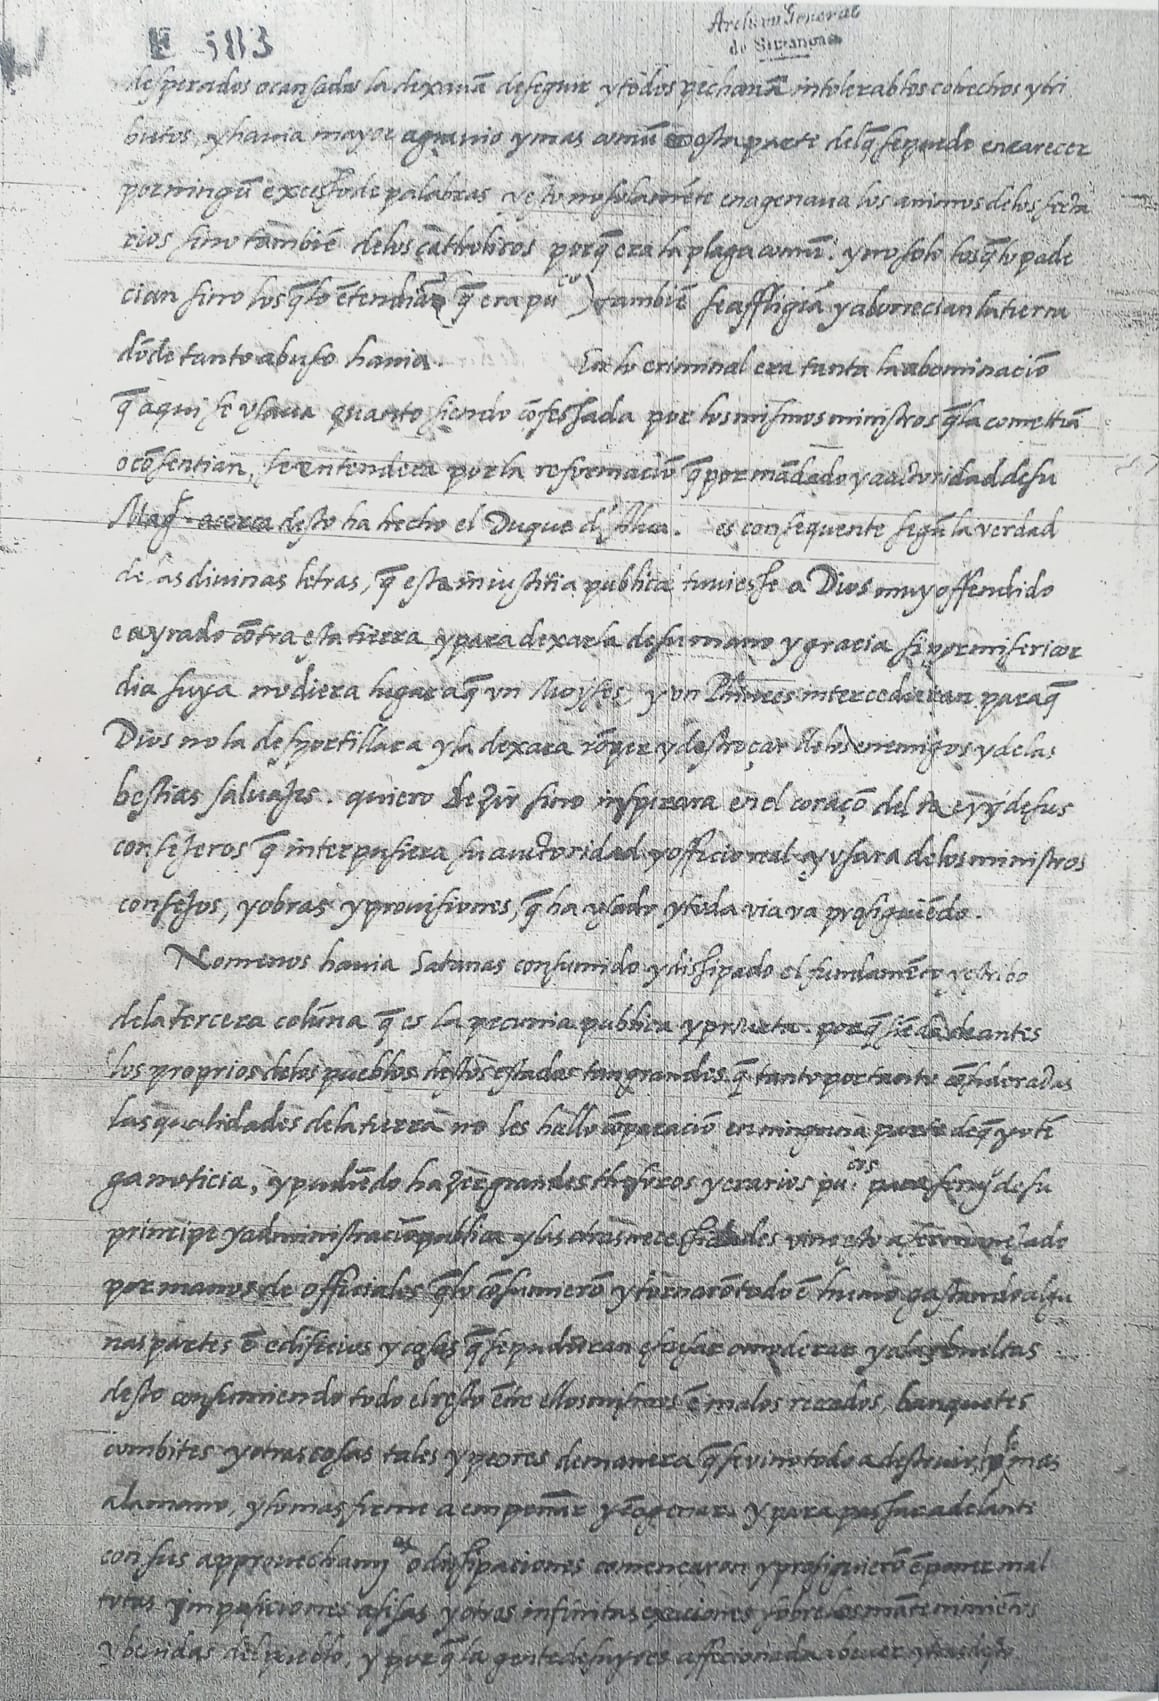 E 583
Archivo General
de Simancas
desperados o cansados la dexavā de seguir y todos pechavā intolerables cohechos y tri
butos, y havia mayor agravio y mas comū en esta parte del q̄ se puede encarecer
por ningū excesso de palabras y esto no solamēte enagenava los animos de los secta
rios sino tambiē de los catholicos porq̄ era la plaga comū: y no solo los q̄ lo pade
cian sino los q̄ lo ētendiā (q̄ era pu^co) tambiē se affligiā y aborrecian la tierra
dōde tanto abuso havia. En lo criminal era tanta la abominaciō
q̄ aqui se usava quanto siendo cōfessada por los mismos ministros q̄ la cometiā
o cōsentian, se entendera por la reformaciō q̄ por mādado y auctoridad de su
Mag^d. acerca desto ha hecho el Duque d' Alva. es consequente segū la verdad
de las divinas letras, q̄ esta iniustitia publica tuviesse a Dios muy offendido
e ayrado cōtra esta tierra y para dexarla de su mano y gracia si por misericor
dia suya no diera lugar a q̄ un Moyses y un Phinees intercedieran para q̄
Dios no la desportillara y la dexara rōper y destroçar de los enemigos y de las
bestias salvajes. quiero dezir sino inspirara en el coraçō del rey y de sus
consejeros q̄ interpusiera su auctoridad y officio real y usara de los ministros
consejos, y obras y provisiones, q̄ ha usado y toda via va prosiguiēdo.
No menos havia Satanas consumido y dissipado el fundamēto y estribo
de la tercera colūna q̄ es la pecunia publica y privata. porq̄ siēdo de antes
los proprios de los pueblos destos estados tan grandes q̄ tanto por tanto cōsideradas
las qualidades de la tierra no les hallo cōparaciō en ninguna parte de q̄ yo tē
ga noticia, y pudiēdo hazer grandes thesoros y erarios pu^cos para serv^o de su
principe y administraciō publica y las otras necessidades vino esto a
por manos de officiales q̄ lo cōsumierō y tornarō todo ē humo gastando algu
nas partes ē edificios y cosas q̄ se pudieran escusar o moderar y a las bueltas
desto consumiendo todo el resto ētre ellos mismos ē malos recados, banquetes
combites y otras cosas tales y peores de manera q̄ se vino todo a destruir lo mas
a la mano, y lo mas firme a empeñar y ēagenar. y para passar adelante
con sus approvechami^os o dissipaciones començaron y prosiguierō ē poner mal
totas imposiciones assisas y otras infinitas exaciones sobre los mātenimiētos
y bevidas del pueblo, y porq̄ la gente de suyo es afficionada a bever y tras desto